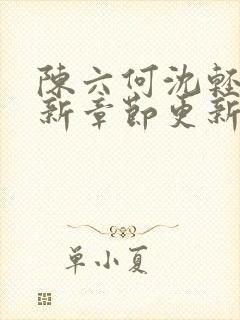 陳六何沈輕
新章節更新
単小夏